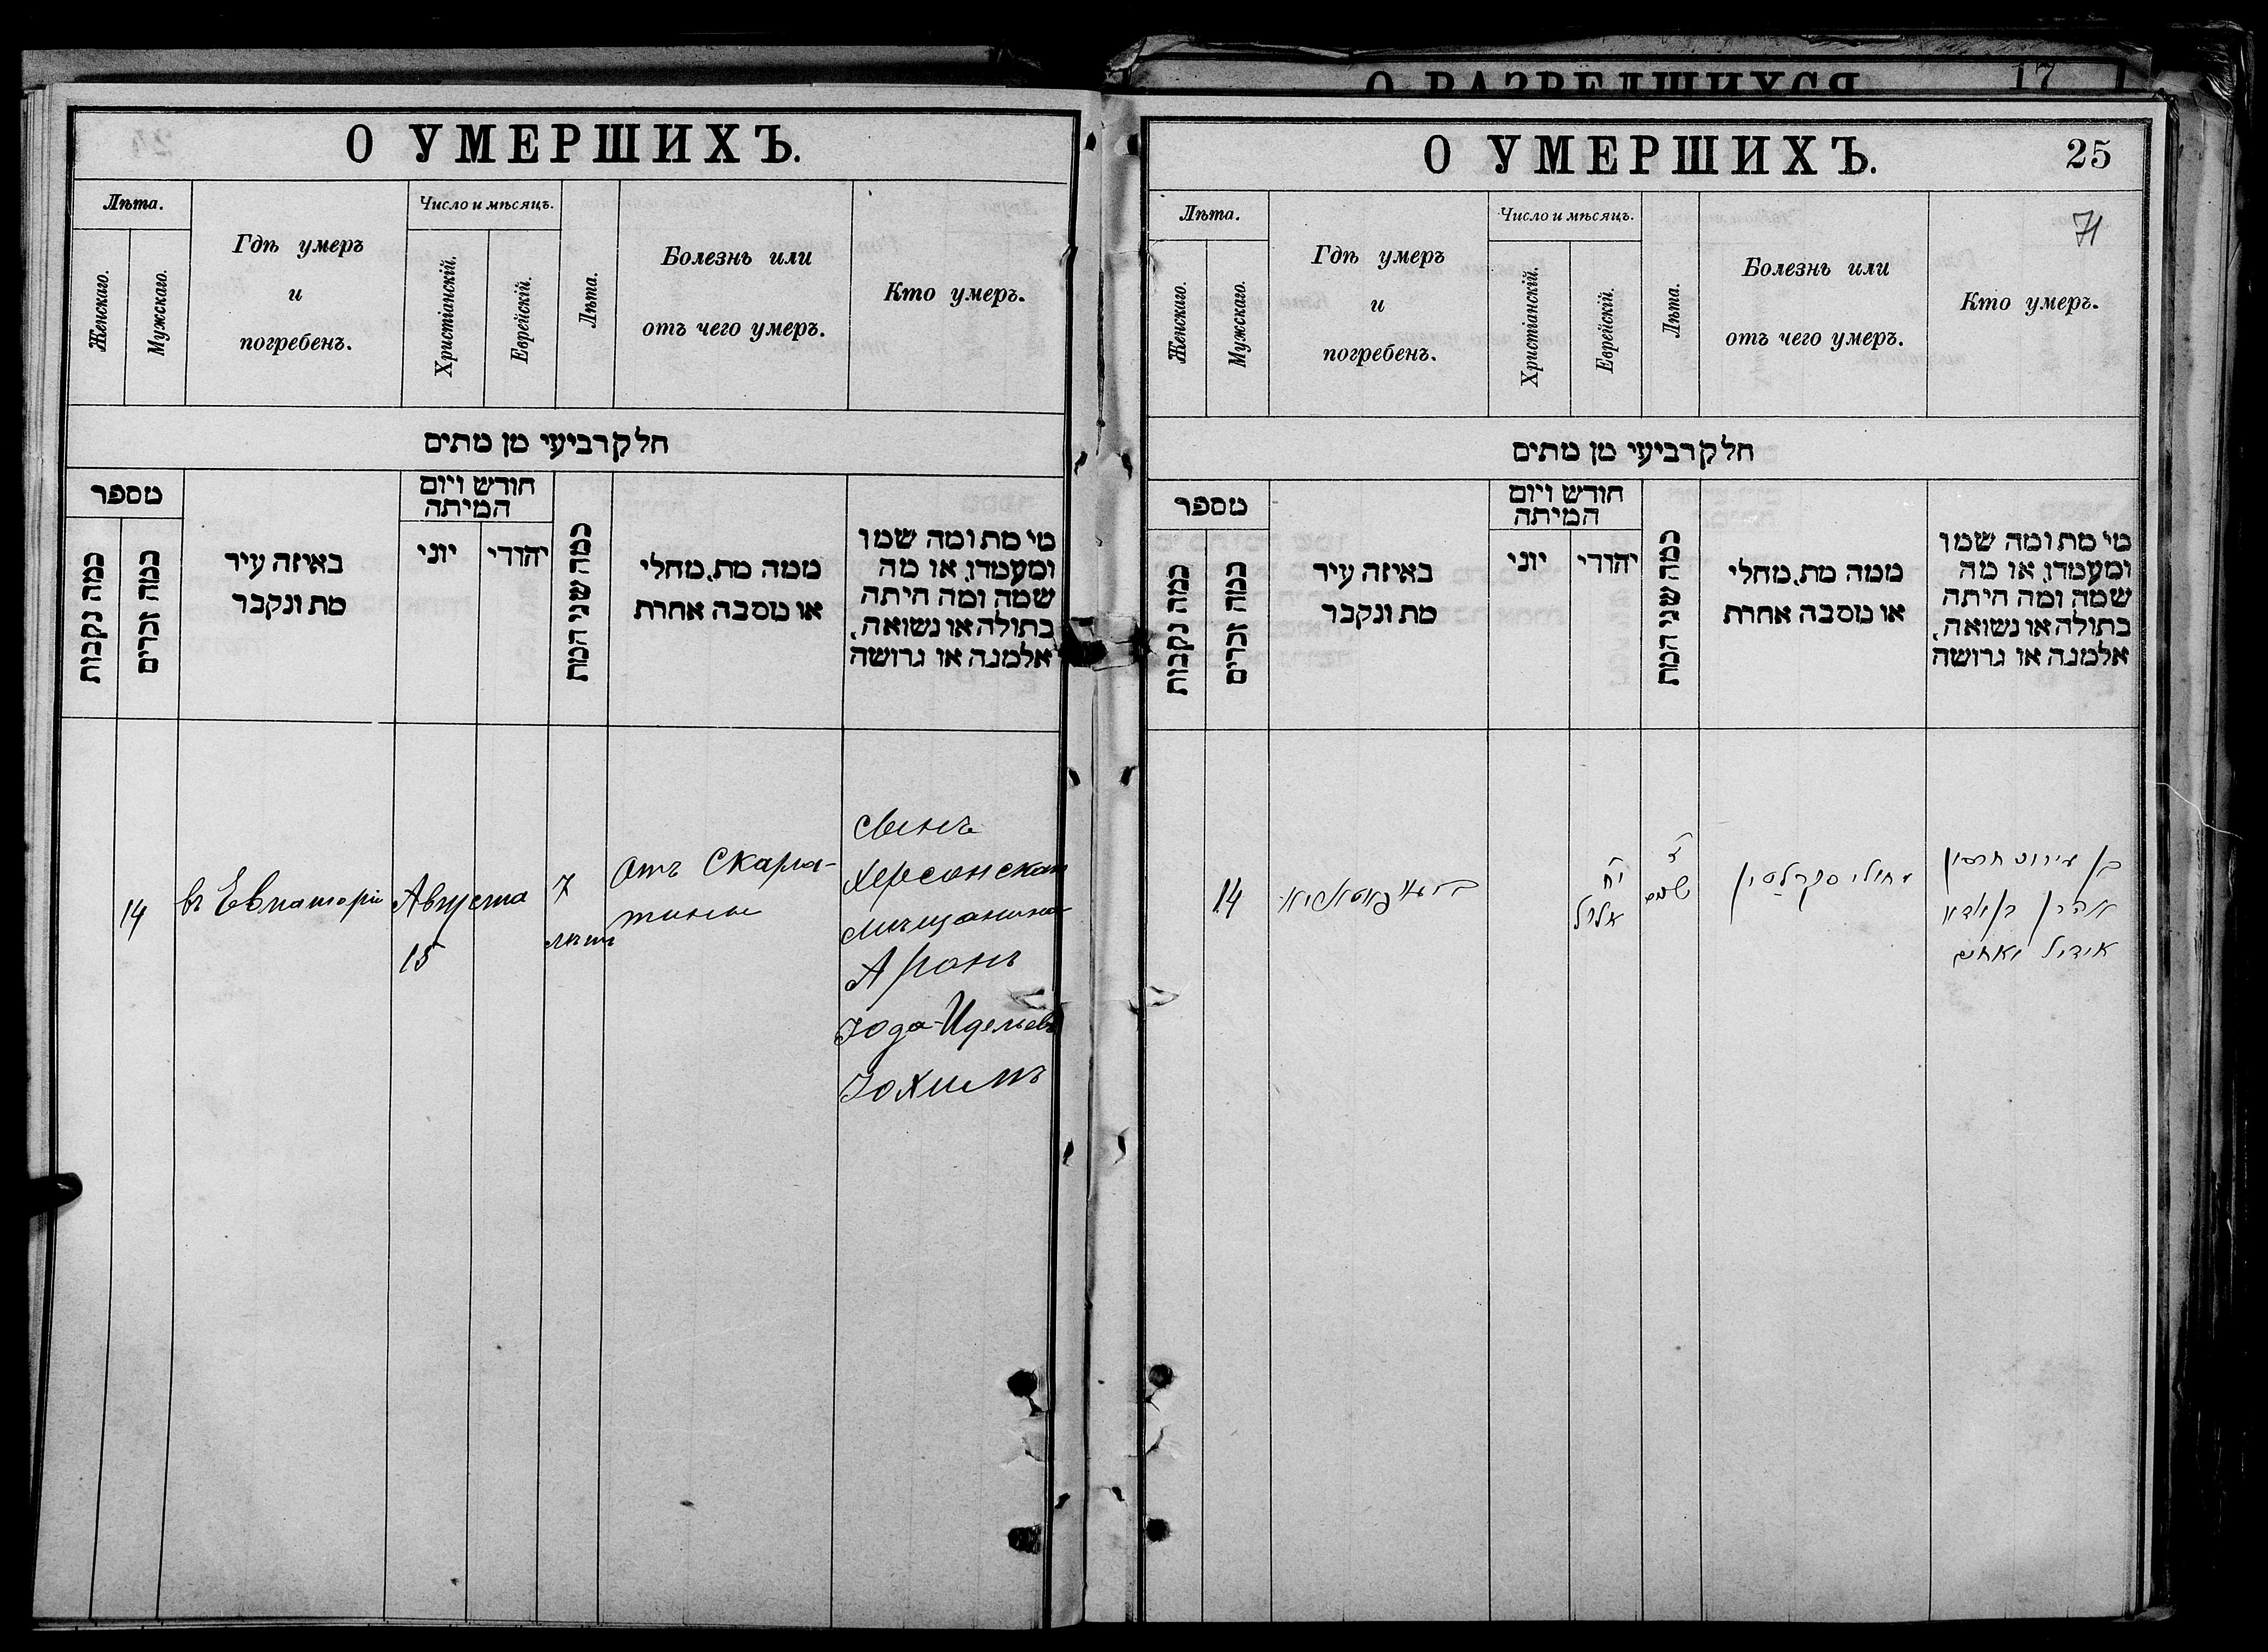 О РАЗВЕДШИХСЯ 17
О УМЕРШИХЪ.
Лѣта.
Женскаго.
Мужскаго.
Гдѣ умеръ
и
погребенъ.
Число и мѣсяцъ.
Христіанскій.
Еврейскій.
Лѣта.
Болезнь или
отъ чего умеръ.
Кто умеръ.
חלק רביעי מן מתים
מספר
כמה נקבות
כמה זכרים
באיזה עיר
מת ונקבר
חודש ויום
המיתה
יוני
יהודי
כמה שני המת
ממה מת, מחלי
או מסבה אחרת
מי מת ומה שמו
ומעמדו, או מה
שמה ומה היתה
בתולה או נשואה,
אלמנה או גרושה
14
въ Евпаторіи
Августа
15
7
лѣтъ
Отъ Скарла-
тины
Сынъ
Херсонскаго
мѣщанина
Аронъ
Іода-Идельевъ
Іохимъ
О УМЕРШИХЪ.
25
71
Лѣта.
Женскаго.
Мужскаго.
Гдѣ умеръ
и
погребенъ.
Число и мѣсяцъ.
Христіанскій.
Еврейскій.
Лѣта.
Болезнь или
отъ чего умеръ.
Кто умеръ.
חלק רביעי מן מתים
מספר
כמה נקבות
כמה זכרים
באיזה עיר
מת ונקבר
חודש ויום
המיתה
יוני
יהודי
כמה שני המת
ממה מת, מחלי
או מסבה אחרת
מי מת ומה שמו
ומעמדו, או מה
שמה ומה היתה
בתולה או נשואה,
אלמנה או גרושה
14
יח
אלול
ז
שנים
מחולי סקרלטין
בן עירוני חרסון
אהרן בן יודא
אידיל יאחים